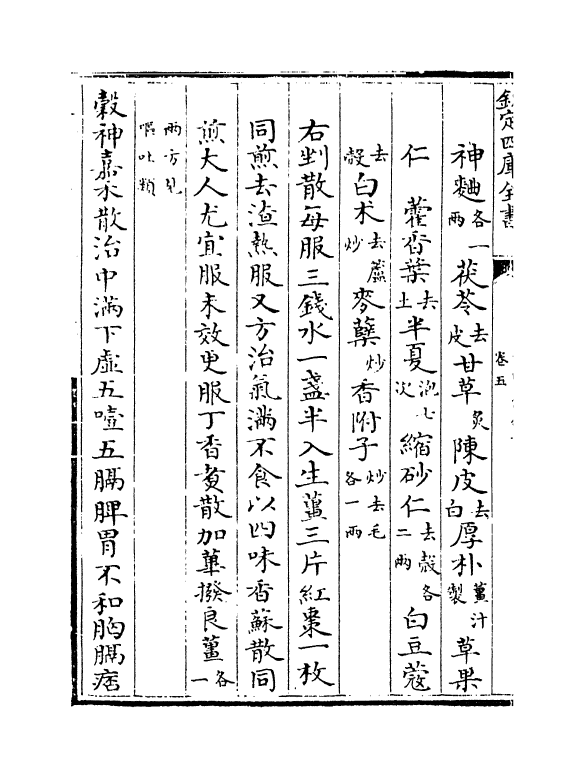 欽定四庫全書
卷五
神麯各一兩茯苓去皮甘草炙陳皮去白厚朴薑汁製草果
仁　藿香葉去土半夏泡七次縮砂仁去殼各二兩白豆蔻
去殼白术去蘆炒麥蘖炒香附子炒去毛各一兩
右剉散每服三錢水一盞半入生薑三片紅棗一枚
同煎去渣熱服又方治氣滿不食以四味香蘇散同
煎大人尤宜服未效更服丁香煑散加蓽撥良薑各一
兩方見嘔吐類
穀神嘉禾散治中滿下虛五噎五膈脾胃不和胸膈痞